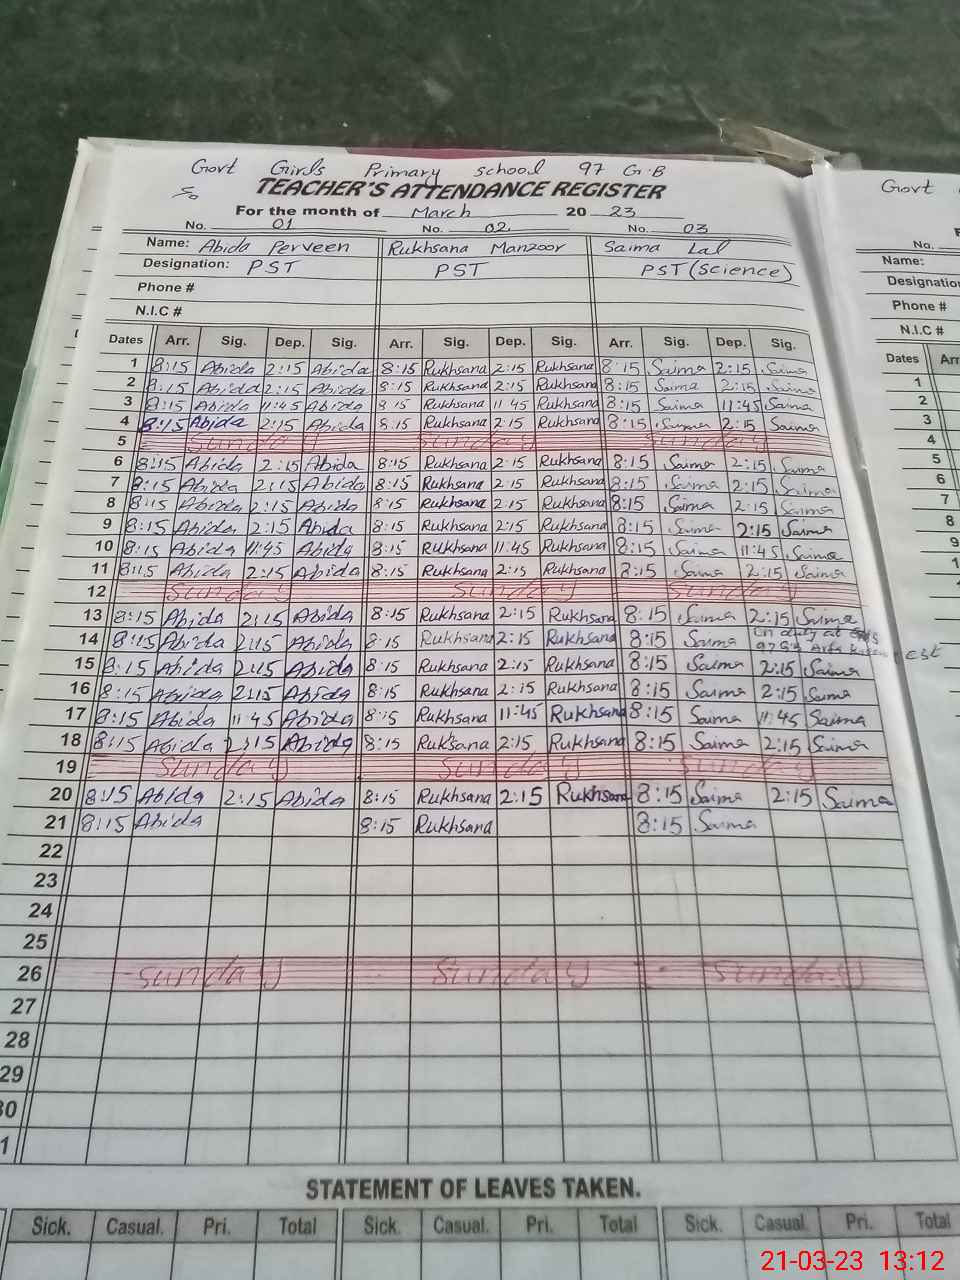 Govt Girls Primary school 97 G.B
TEACHER'S ATTENDANCE REGISTER
For the month of March 20 23
No. 01 No. 02 No. 03
Name: Abida Perveen Rukhsana Manzoor Saima Lal
Designation: PST PST PST (Science)
Phone #
N.I.C #
Dates Arr. Sig. Dep. Sig. Arr. Sig. Dep. Sig. Arr. Sig. Dep. Sig.
1 8:15 Abida 2:15 Abida 8:15 Rukhsana 2:15 Rukhsana 8:15 Saima 2:15 Saima
2 8:15 Abida 2:15 Abida 8:15 Rukhsana 2:15 Rukhsana 8:15 Saima 2:15 Saima
3 8:15 Abida 11:45 Abida 8:15 Rukhsana 11:45 Rukhsana 8:15 Saima 11:45 Saima
4 8:15 Abida 2:15 Abida 8:15 Rukhsana 2:15 Rukhsana 8:15 Saima 2:15 Saima
5 Sunday Sunday Sunday
6 8:15 Abida 2:15 Abida 8:15 Rukhsana 2:15 Rukhsana 8:15 Saima 2:15 Saima
7 8:15 Abida 2:15 Abida 8:15 Rukhsana 2:15 Rukhsana 8:15 Saima 2:15 Saima
8 8:15 Abida 2:15 Abida 8:15 Rukhsana 2:15 Rukhsana 8:15 Saima 2:15 Saima
9 8:15 Abida 2:15 Abida 8:15 Rukhsana 2:15 Rukhsana 8:15 Saima 2:15 Saima
10 8:15 Abida 11:45 Abida 8:15 Rukhsana 11:45 Rukhsana 8:15 Saima 11:45 Saima
11 8:15 Abida 2:15 Abida 8:15 Rukhsana 2:15 Rukhsana 8:15 Saima 2:15 Saima
12 Sunday Sunday Sunday
13 8:15 Abida 2:15 Abida 8:15 Rukhsana 2:15 Rukhsana 8:15 Saima 2:15 Saima
14 8:15 Abida 2:15 Abida 8:15 Rukhsana 2:15 Rukhsana 8:15 Saima On duty at
15 8:15 Abida 2:15 Abida 8:15 Rukhsana 2:15 Rukhsana 8:15 Saima 2:15 Saima
16 8:15 Abida 2:15 Abida 8:15 Rukhsana 2:15 Rukhsana 8:15 Saima 2:15 Saima
17 8:15 Abida 11:45 Abida 8:15 Rukhsana 11:45 Rukhsana 8:15 Saima 11:45 Saima
18 8:15 Abida 2:15 Abida 8:15 Ruksana 2:15 Rukhsana 8:15 Saima 2:15 Saima
19 Sunday Sunday Sunday
20 8:15 Abida 2:15 Abida 8:15 Rukhsana 2:15 Rukhsana 8:15 Saima 2:15 Saima
21 8:15 Abida 8:15 Rukhsana 8:15 Saima
22
23
24
25
26 Sunday Sunday Sunday
27
28
29
30
1
STATEMENT OF LEAVES TAKEN.
Sick. Casual. Pri. Total Sick. Casual. Pri. Total Sick. Casual. Pri. Total
Govt
No.
Name:
Designation
Phone #
N.I.C #
Dates Arr
1
2
3
4
5
6
7
8
9
10
21-03-23 13:12